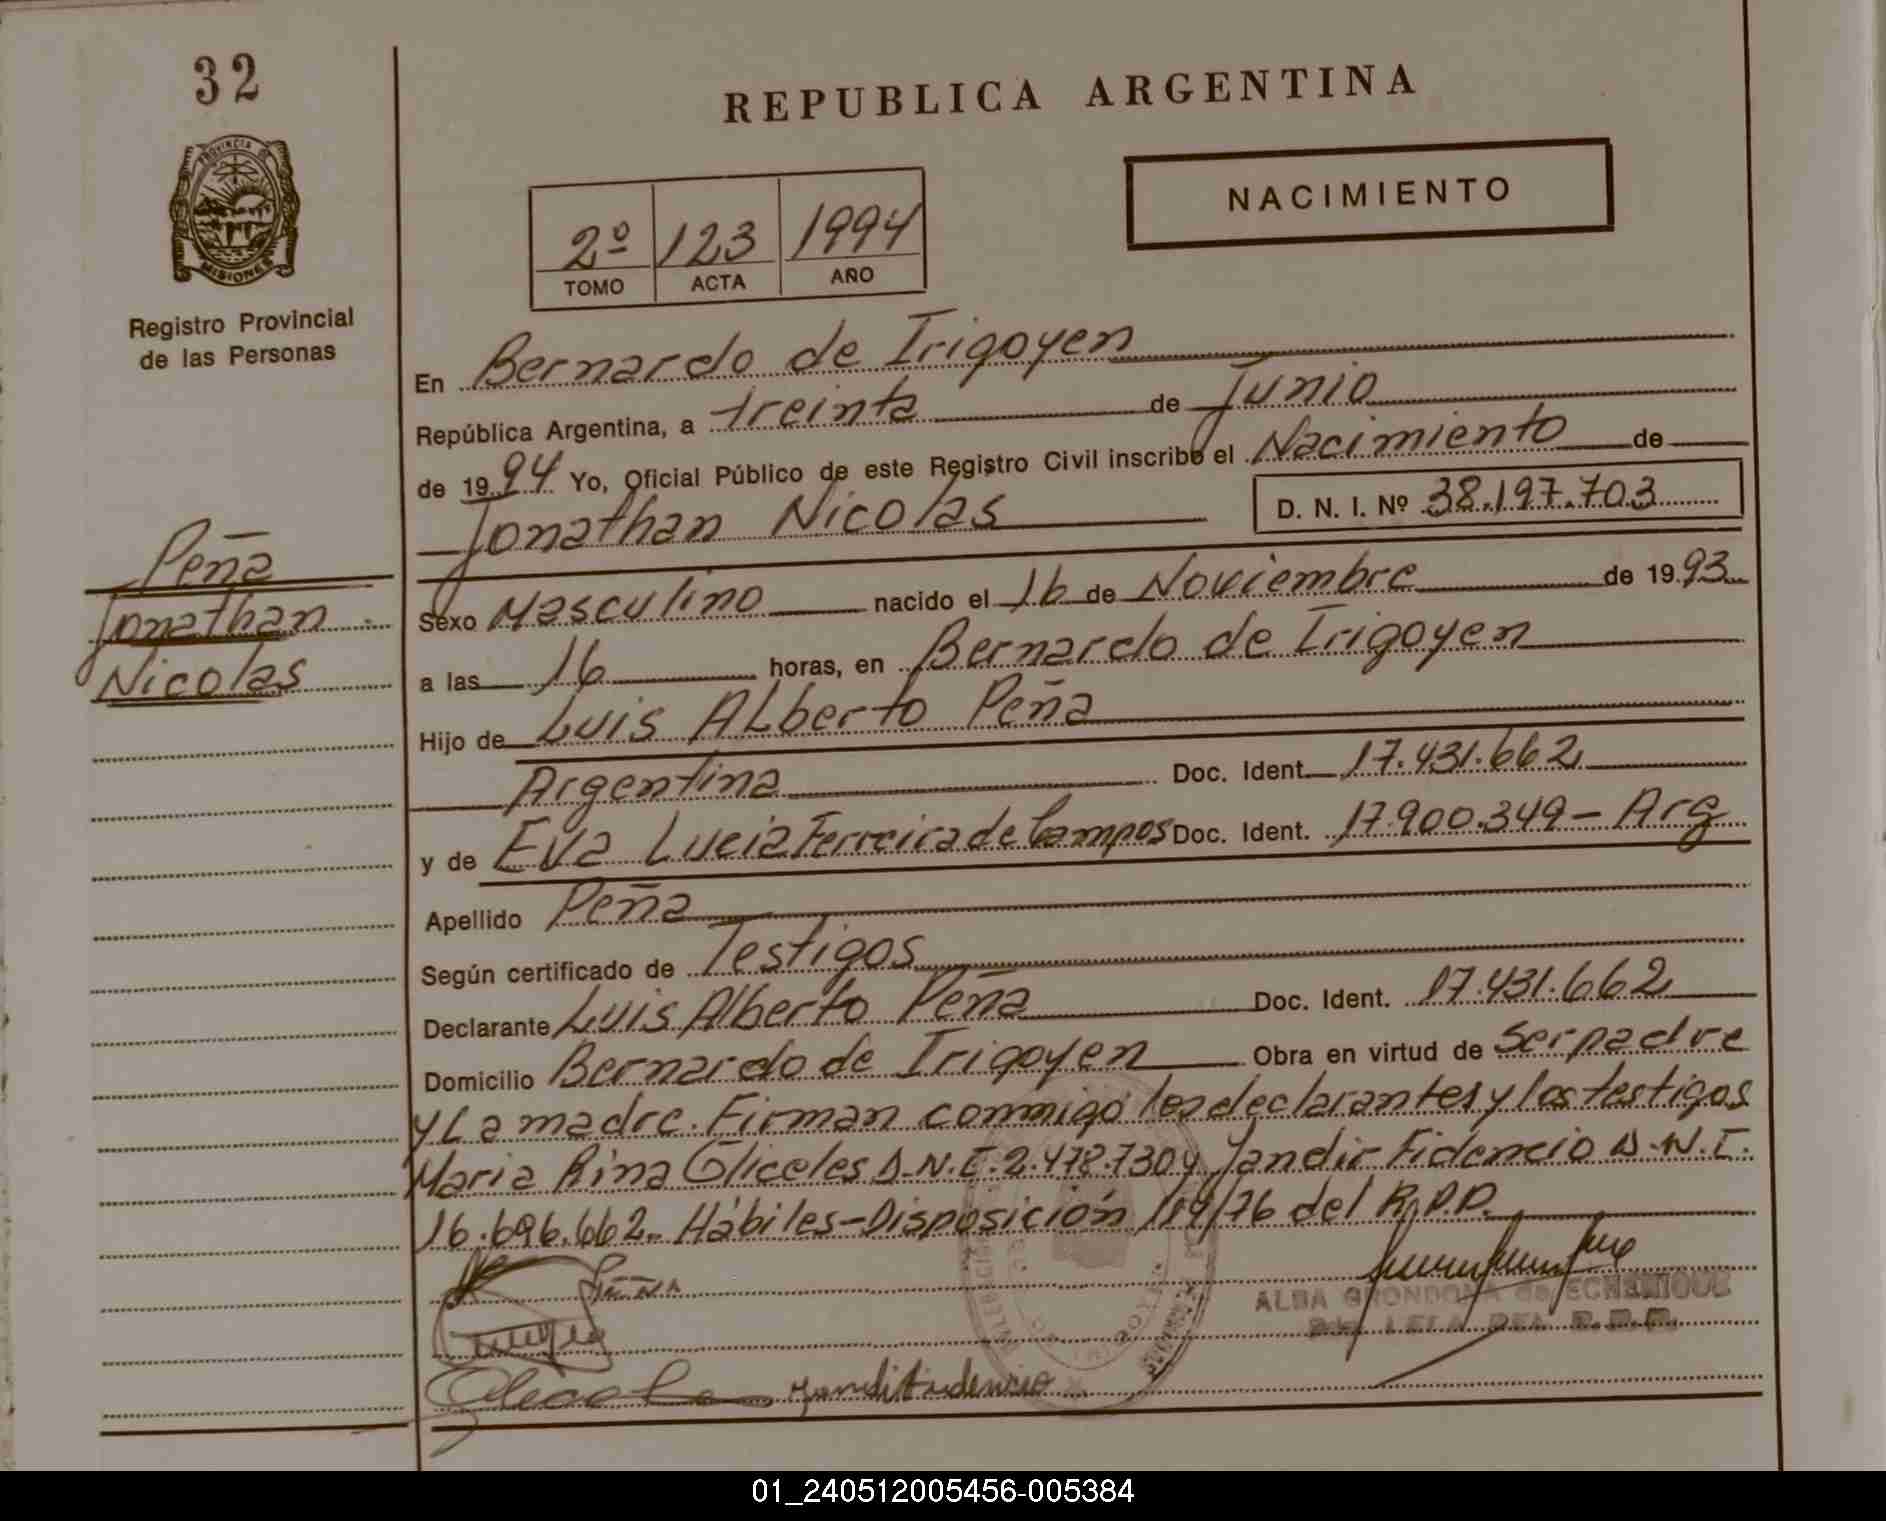 32
REPUBLICA ARGENTINA
PROVINCIA DE
MISIONES
Registro Provincial
de las Personas
NACIMIENTO
2º 123 1994
TOMO ACTA AÑO
En Bernardo de Irigoyen
República Argentina, a treinta de Junio
de 1994 Yo, Oficial Público de este Registro Civil inscribo el Nacimiento de
Jonathan Nicolas D. N. I. Nº 38.197.703
Peña
Jonathan
Nicolas
Sexo Masculino nacido el 16 de Noviembre de 1993
a las 16 horas, en Bernardo de Irigoyen
Hijo de Luis Alberto Peña
Argentina Doc. Ident. 17.431.662
y de Eva Lucia Ferreira de Campos Doc. Ident. 17.900.349- Arg
Apellido Peña
Según certificado de Testigos
Declarante Luis Alberto Peña Doc. Ident. 17.431.662
Domicilio Bernardo de Irigoyen Obra en virtud de ser padre
y La madre. Firman conmigo los declarantes y los testigos
Maria Rina Oliceles D.N.I. 2.478.730 y Jandir Fidencio D.N.I.
16.696.662. Hábiles-Disposición 119/76 del R.P.P.
PEÑA
ALBA GRONDONA de ECHENIQUE
R.P.P.
01_240512005456-005384